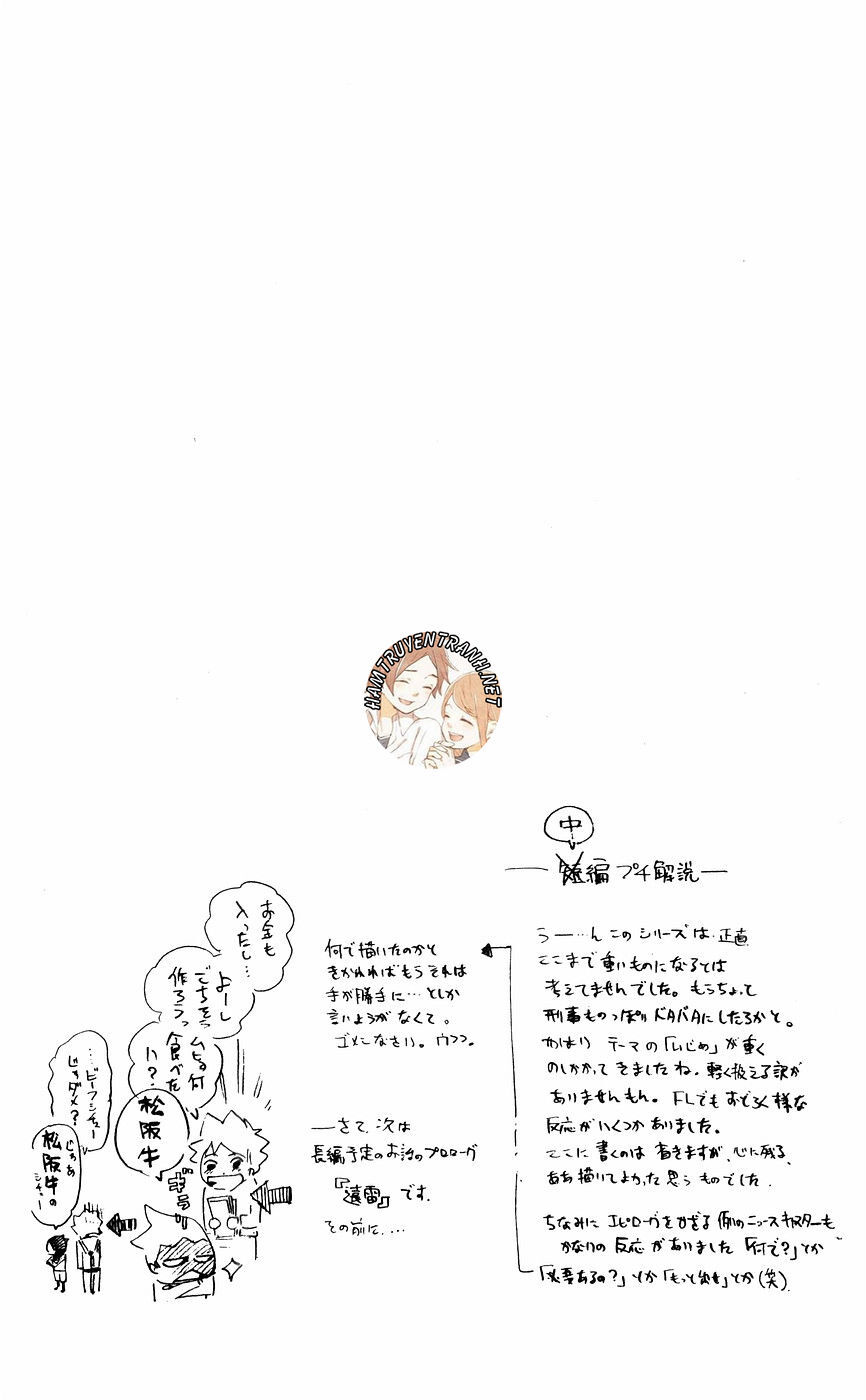 中
編 プチ解説
うー…ん このシリーズは、正直
ここまで重いものになるとは
考えてませんでした。もうちょって
刑事ものっぽりドタバタにしたるかと。
やはり テーマの「いじめ」が重く
のしかかって きましたね。軽く扱える訳が
ありませんもん。FLでもおどろく様な
反応がいくつかありました。
ここに書くのは 省きますが、心に残る、
ああ描いてよかった思う ものでした。
ちなみに エピローグをかざる 例のニュースキャスターも
かなりの 反応 がありました 「何で?」とか
「必要あるの?」とか「もっと出せ」とか(笑)
何で描いたのかと
きかれればもう それは
手が勝手に…としか
言いようがなくて。
ゴメンなさい。ウフフ。
―さて、次は
長編予定のお話のプロローグ
『遠雷』です。
その前に…
お金も
入ったし…
よーし
ごちそう
作ろうっ
ムヒョ何
食べた
い?
松阪牛
ギラッ
…ビーフシチュー
じゃダメ?
じゃあ
松阪牛の
シチュー
HAMTRUYENTRANH.NET